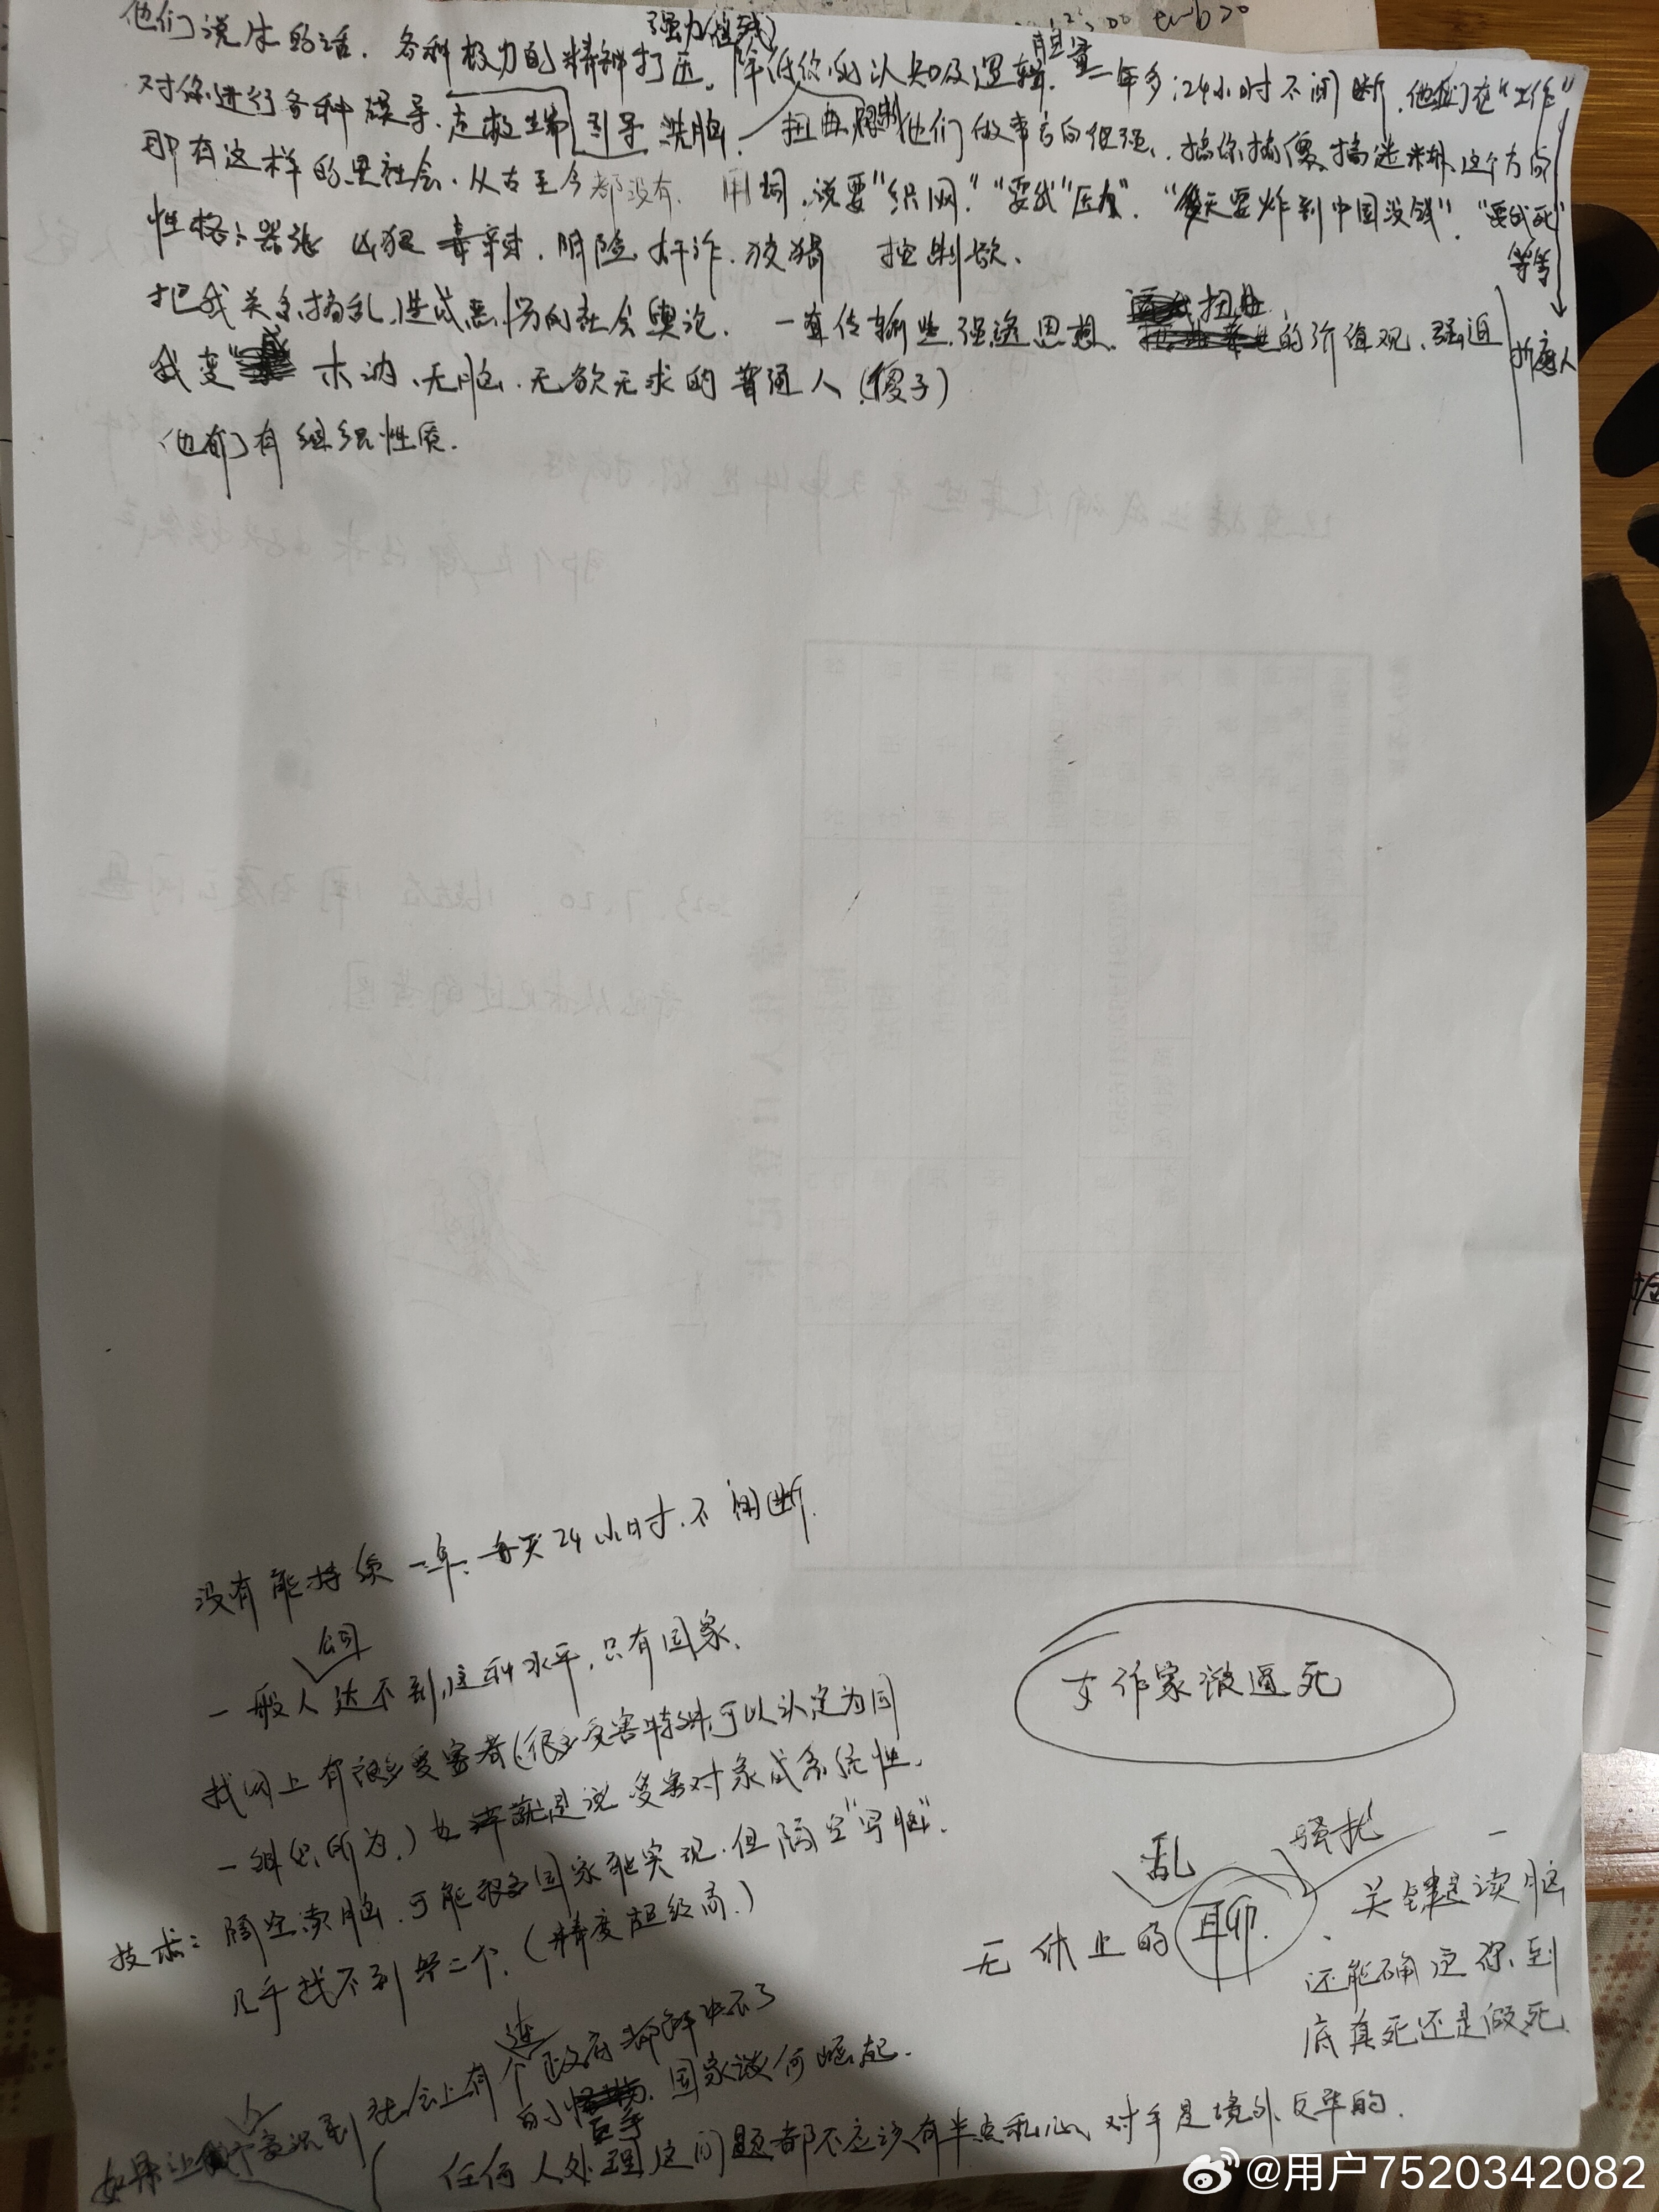 强力(值残)
他们说出的话. 各种极力的精神打压, 降低你的认知及逻辑. 胆量 一年多;24小时不间断.他们在“工作”
对你进行各种误导.走极端引导 洗脑. 扭曲 他们做事方向很强, 搞你搞傻,搞迷糊.这个方向
那有这样的黑社会.从古至今都没有. 用词,说要“织网”.“要我”“压力”.“每天要炸到中国没钱”.“要我死”
等等
性格:嚣张 凶狠 毒辣.阴险.奸诈.狡猾 控制欲.
把我关系搞乱,造成恶劣的社会舆论. 一直传输些强迫思想. 扭曲的价值观,强迫
折磨人
我变成 木讷,无脑.无欲无求的普通人(傻子)
他们有组织性质.
没有能持续一年,每天24小时.不间断.
公司
一般人达不到这种水平,只有国家.
找网上有很多受害者(很多受害特殊可以认定为同
一组织所为,)也就是说受害对象成系统性.
技术: 隔空读脑.可能很多国家能实现.但隔空“写脑”.
几乎找不到第二个.(精度超级高.)
女作家被逼死
乱 骚扰
无休止的聊.
关键是读脑
还能确定你到
底真死还是假死
如果让人意识到社会上有个连政府都解决不了
的小.国家谈何崛起.
任何人处理这问题都不应该有半点私心,对手是境外反华的.
@用户7520342082